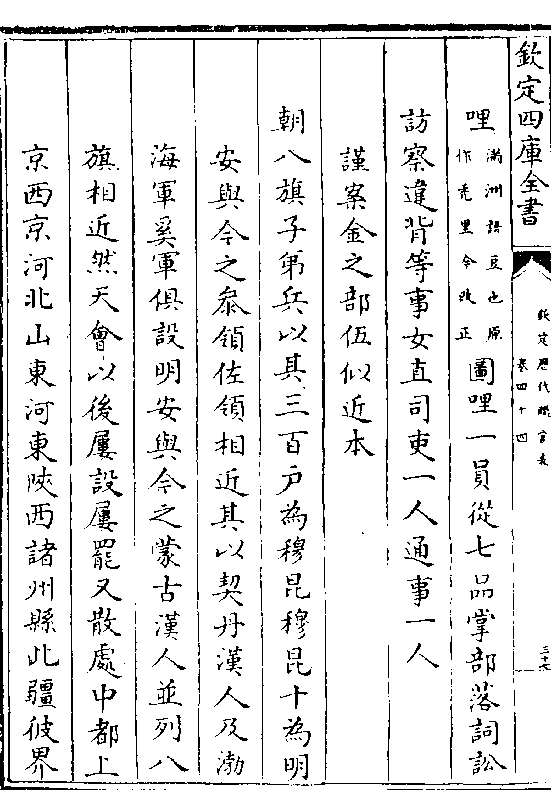 欽定四庫全書
欽定歷代職官表
卷四十四
三十七
哩滿洲語豆也原作禿里今改正圖哩一員從七品掌部落詞訟
訪察違背等事女直司吏一人通事一人
謹案金之部伍似近本
朝八旗子弟兵以其三百戶為穆昆穆昆十為明
安與今之叅領佐領相近其以契丹漢人及渤
海軍奚軍俱設明安與今之蒙古漢人並列八
旗相近然天會以後屢設屢罷又散處中都上
京西京河北山東河東陜西諸州縣此疆彼界